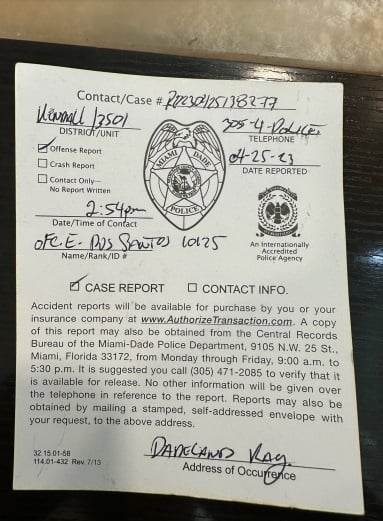 Contact/Case # PD230425138277
Kendall / 3501
DISTRICT/UNIT
305-4-Police
TELEPHONE
Offense Report
Crash Report
Contact Only—
No Report Written
04-25-23
DATE REPORTED
MIAMI DADE
POLICE
2:54pm
Date/Time of Contact
OFC. E. DOS SANTOS
Name/Rank/ID #
An Internationally
Accredited
Police Agency
CASE REPORT
CONTACT INFO.
Accident reports will be available for purchase by you or your
insurance company at www.AuthorizeTransaction.com. A copy
of this report may also be obtained from the Central Records
Bureau of the Miami-Dade Police Department, 9105 N.W. 25 St.,
Miami, Florida 33172, from Monday through Friday, 9:00 a.m. to
5:30 p.m. It is suggested you call (305) 471-2085 to verify that it
is available for release. No other information will be given over
the telephone in reference to the report. Reports may also be
obtained by mailing a stamped, self-addressed envelope with
your request, to the above address.
DADELAND
32.15.01-58
114.01-432 Rev. 7/13
Address of Occurrence